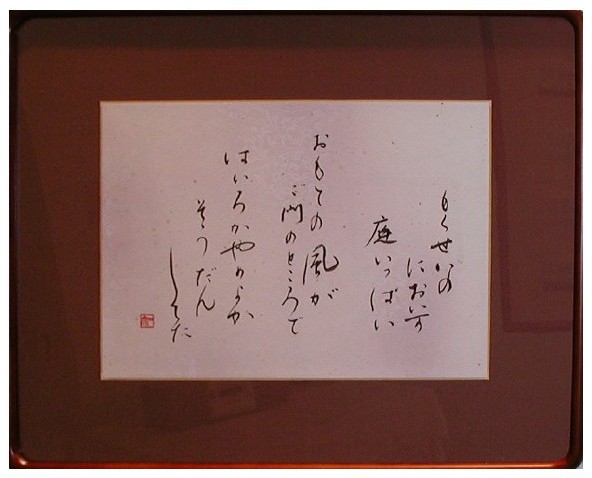 もくせいの
においが
庭いっぱい
おもての風が
ご門のところで
はいろかやめよか
そうだん
してた